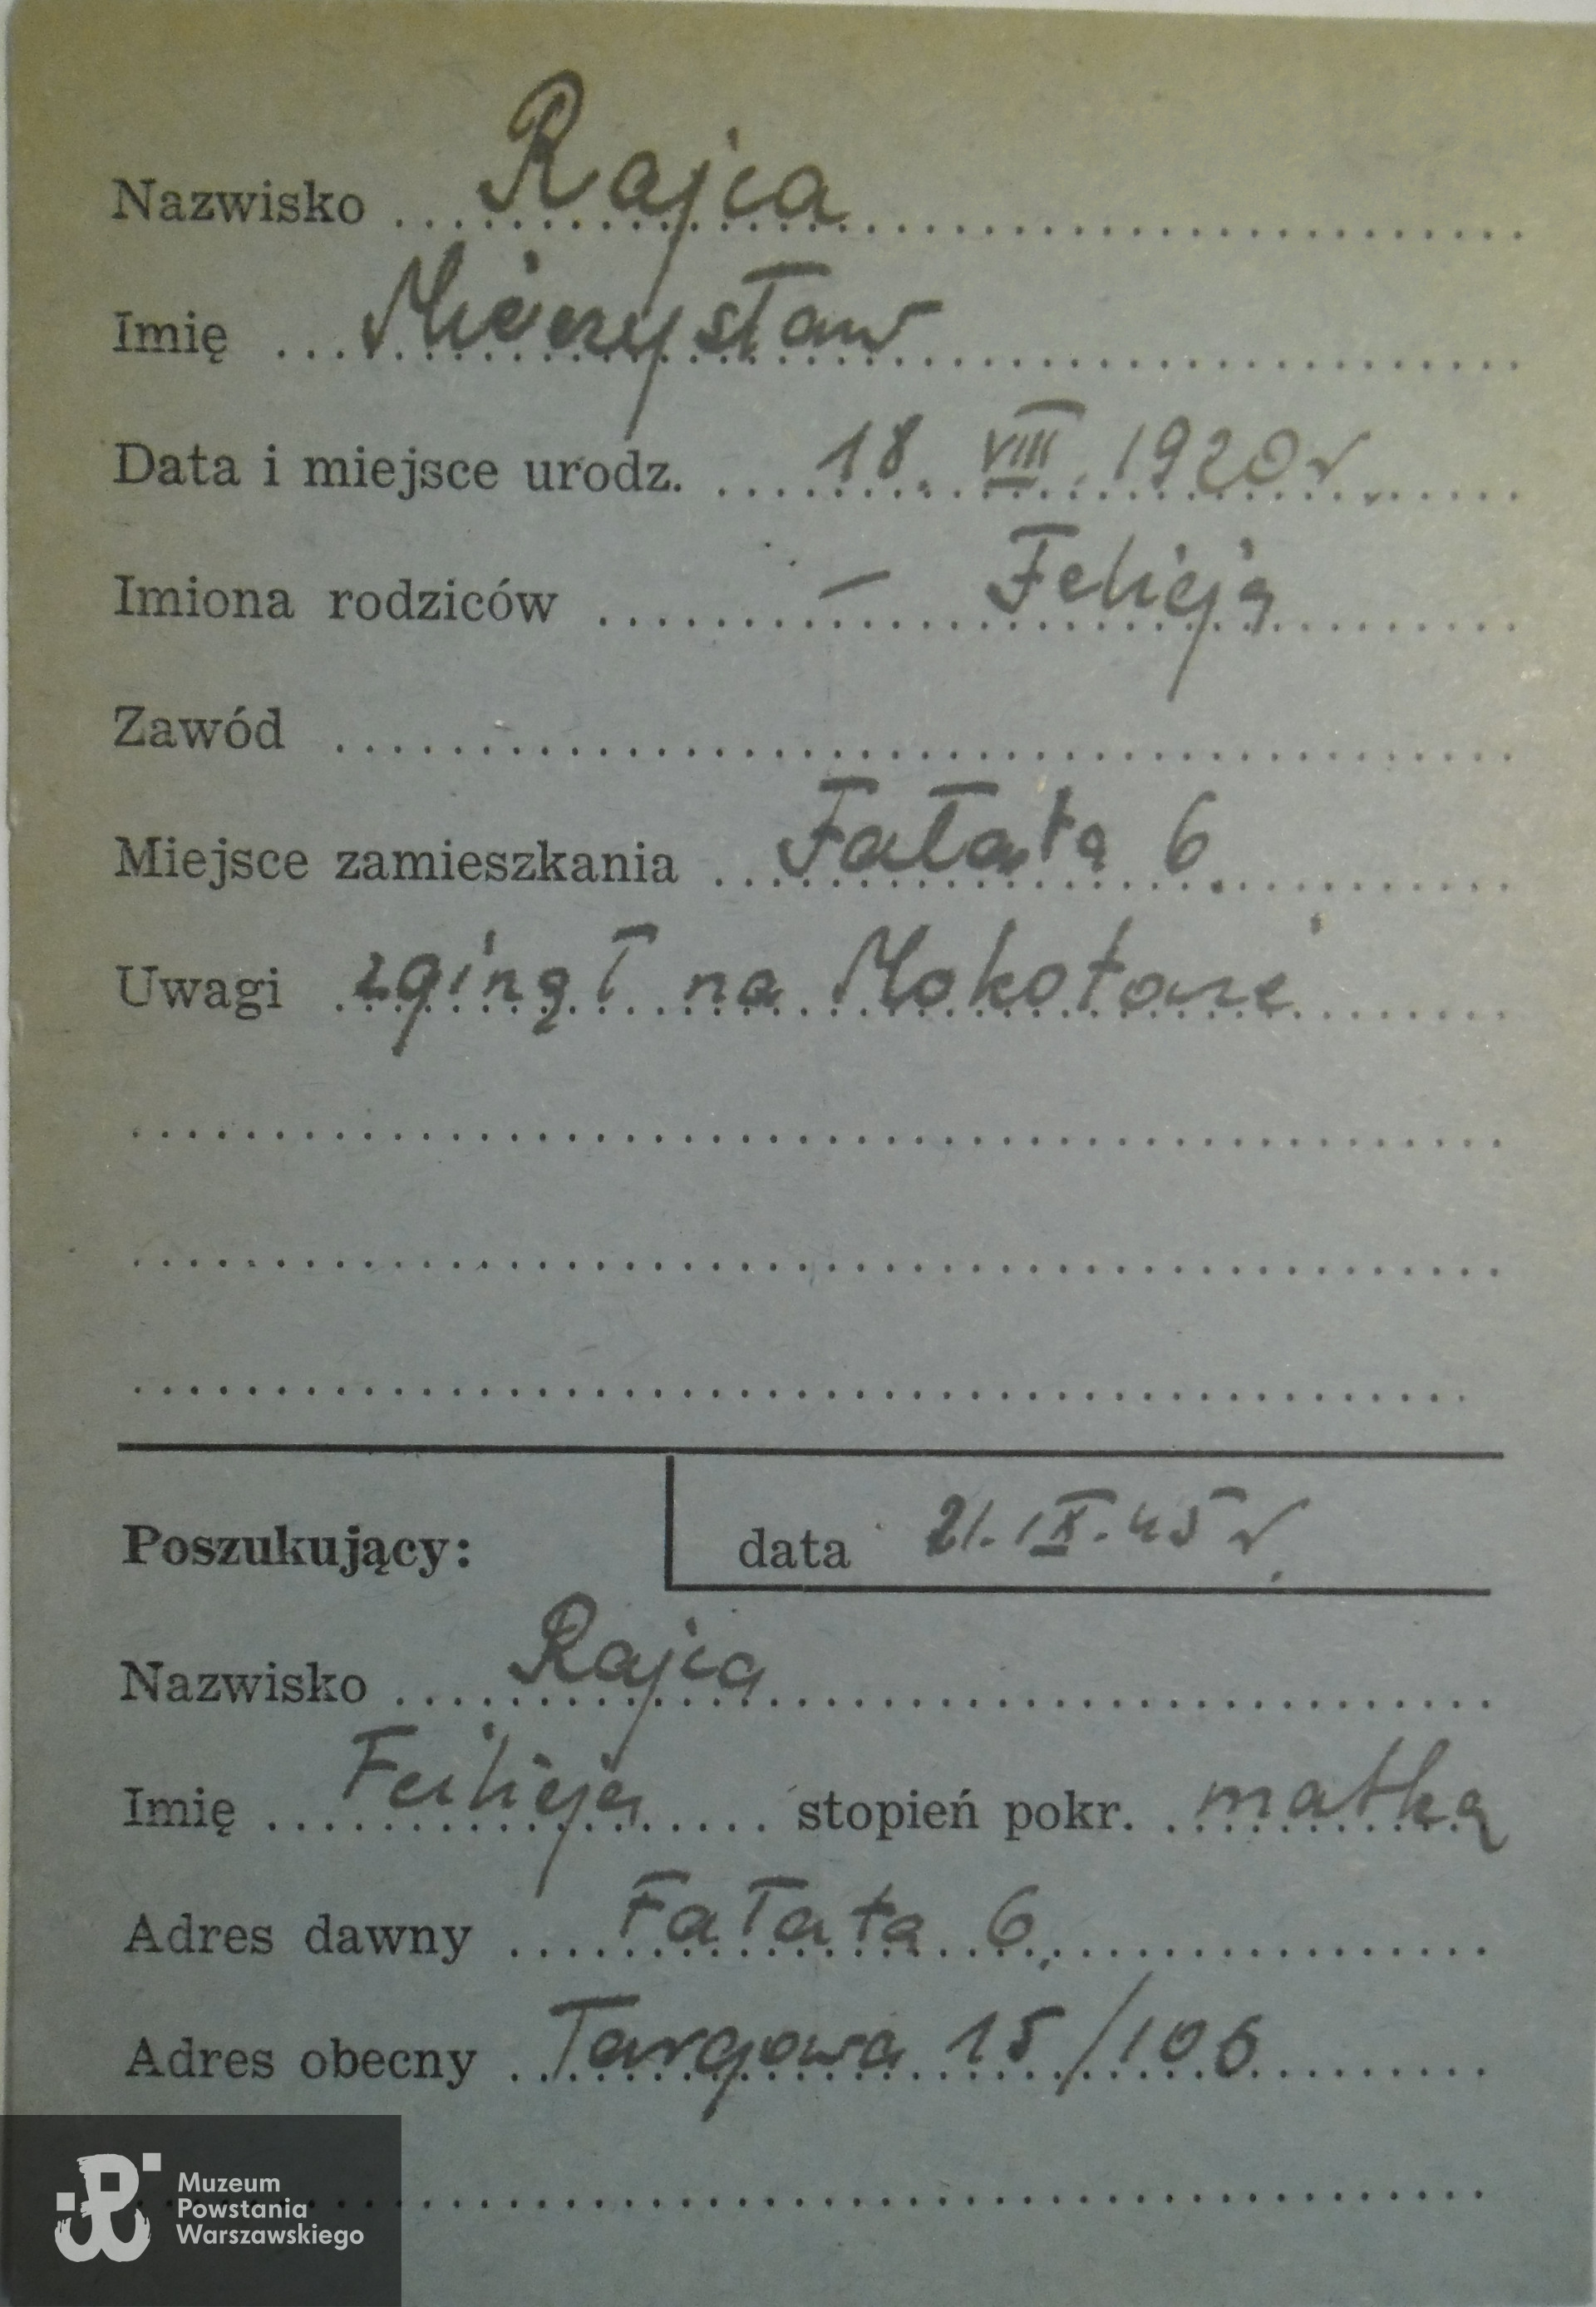 Nazwisko Rajca
Imię Mieczysław
Data i miejsce urodz. 18. VIII. 1920 r.
Imiona rodziców — Felicja
Zawód
Miejsce zamieszkania Fałata 6.
Uwagi zginął na Mokotowie
Poszukujący: data 21. IX. 45 r.
Nazwisko Rajca
Imię Felicja stopień pokr. matka
Adres dawny Fałata 6.
Adres obecny Targowa 15/106
Muzeum
Powstania
Warszawskiego